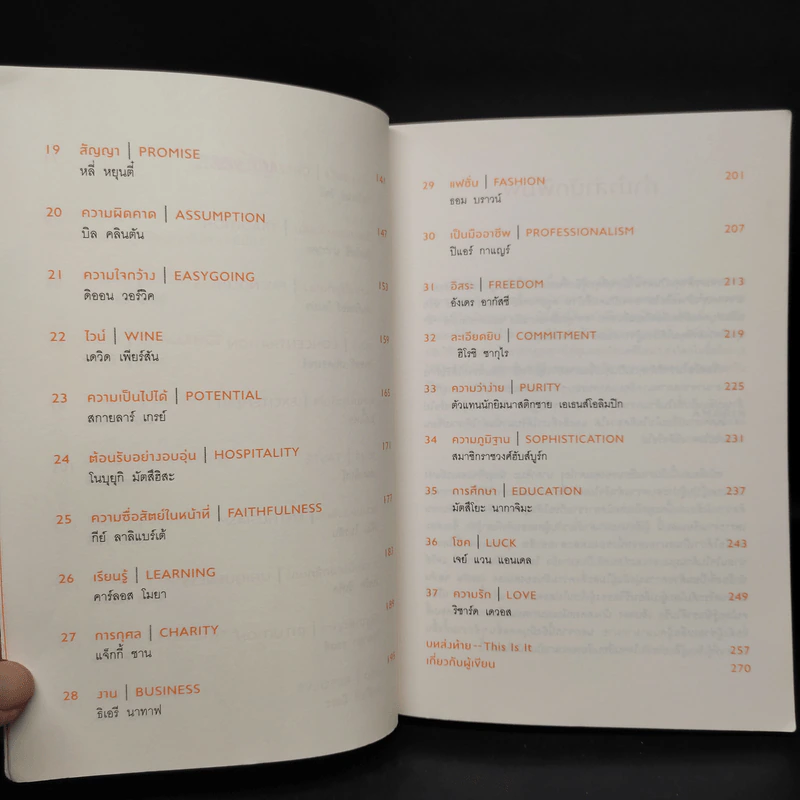 19 สัญญา | PROMISE
หลี่ หยุนตี๋ 141
20 ความผิดคาด | ASSUMPTION
บิล คลินตัน 147
21 ความใจกว้าง | EASYGOING
ดิออน วอร์วิค 153
22 ไวน์ | WINE
เดวิด เพียร์สัน 159
23 ความเป็นไปได้ | POTENTIAL
สกายลาร์ เกรย์ 165
24 ต้อนรับอย่างอบอุ่น | HOSPITALITY
โนบุยูกิ มัตสึฮิสะ 171
25 ความซื่อสัตย์ในหน้าที่ | FAITHFULNESS
กีย์ ลาลิแบร์เต้ 177
26 เรียนรู้ | LEARNING
คาร์ลอส โมยา 183
27 การกุศล | CHARITY
แจ็กกี้ ชาน 189
28 งาน | BUSINESS
ธิเอรี นาทาฟ 195
29 แฟชั่น | FASHION 201
ธอม บราวน์
30 เป็นมืออาชีพ | PROFESSIONALISM 207
ปิแอร์ กาแญร์
31 อิสระ | FREEDOM 213
อังเดร อากัสซี
32 ละเอียดยิบ | COMMITMENT 219
ฮิโรชิ ซากุไร
33 ความว่าง่าย | PURITY 225
ตัวแทนนักยิมนาสติกชาย เอเธนส์โอลิมปิก
34 ความภูมิฐาน | SOPHISTICATION 231
สมาชิกราชวงศ์ฮับส์บูร์ก
35 การศึกษา | EDUCATION 237
มัตสึโยะ นากาจิมะ
36 โชค | LUCK 243
เจย์ แวน แอนเดล
37 ความรัก | LOVE 249
ริชาร์ด เดวอส
บทส่งท้าย--This Is It 257
เกี่ยวกับผู้เขียน 270